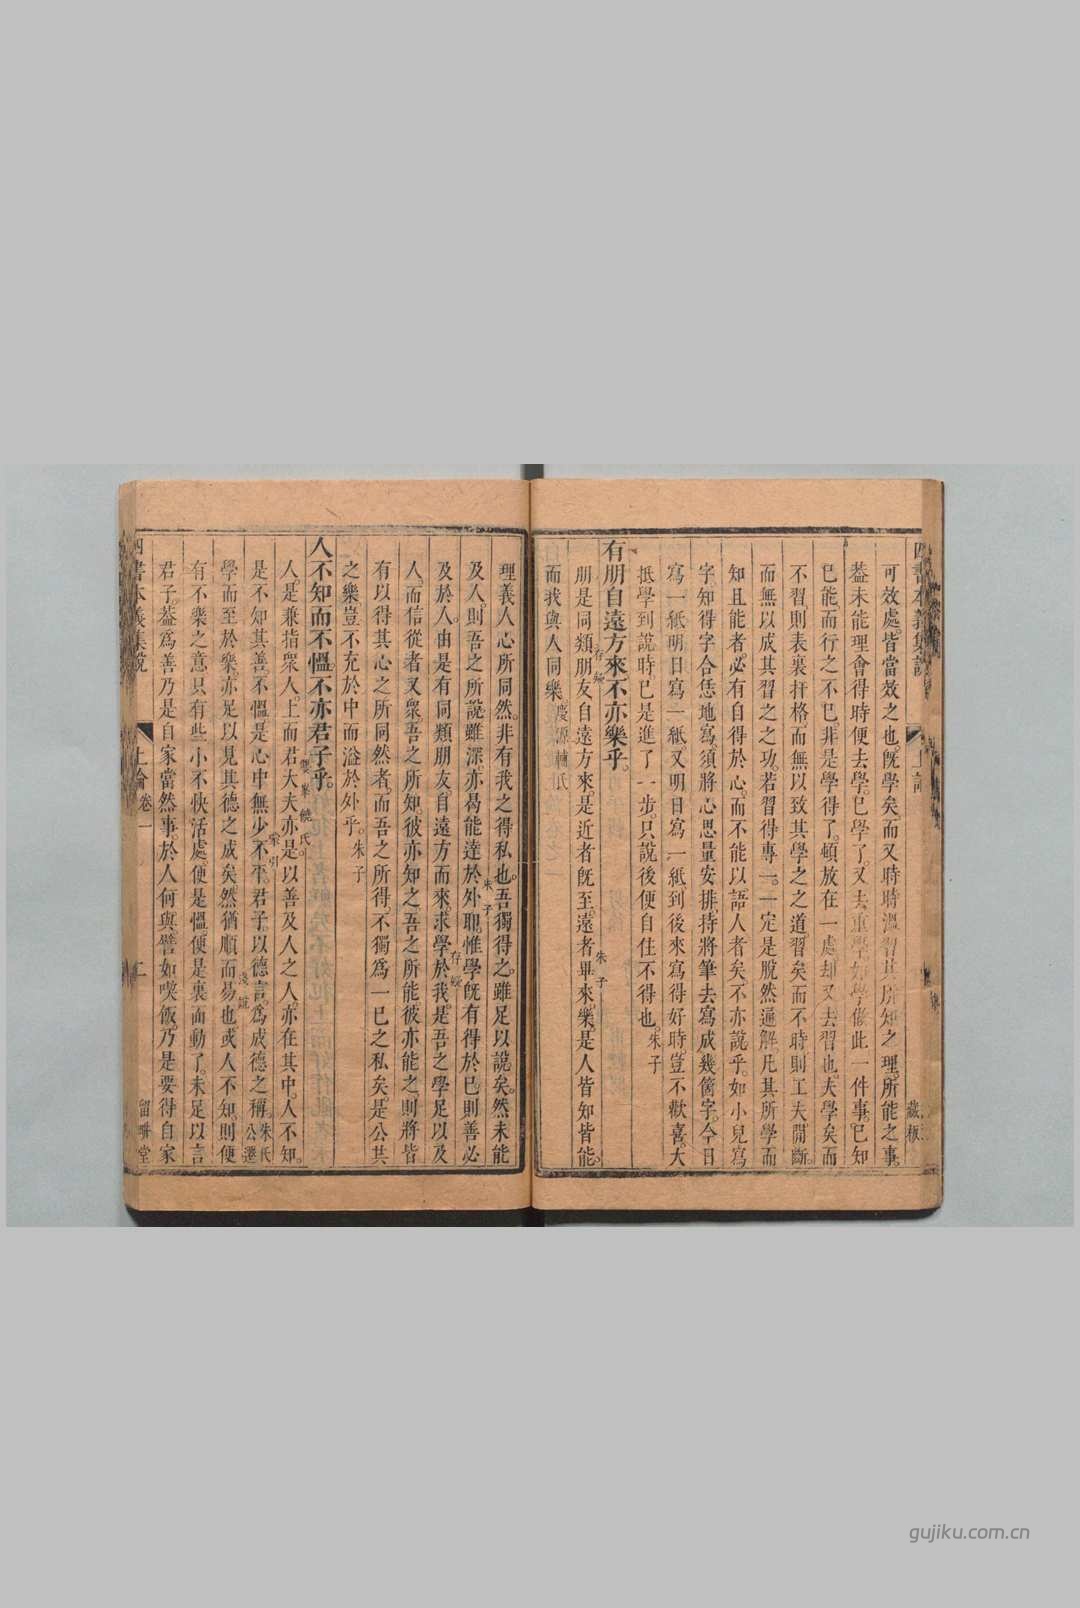 可效處。皆當效之也。旣學矣。而又時時溫習其所知之理。所能之事。
葢未能理會得時。便去學。已學了。又去重學。如學做此一件事。已知
已能而行之不已。非是學得了。頓放在一處。却又去習也。夫學矣而
不習。則表裏扞格。而無以致其學之之道。習矣而不時。則工夫間斷。
而無以成其習之之功。若習得專一。一定是脫然通解。凡其所學而
知且能者。必有自得於心。而不能以語人者矣。不亦說乎。如小兒寫
字。知得字合恁地寫。須將心思量安排。持將筆去寫成幾箇字。今日
寫一紙。明日寫一紙。又明日寫一紙。到後來寫得好時。豈不歡喜。大
抵學到說時。已是進了一步。只說後便自住不得也。朱子
有朋自遠方來。不亦樂乎。
存疑
朱子
朋是同類朋友。自遠方來。是近者旣至。遠者畢來。樂是人皆知皆能。
而我與人同樂。慶源輔氏
朱子
存疑
理義人心所同然。非有我之得私也。吾獨得之。雖足以說矣。然未能
及人。則吾之所說雖深。亦曷能達於外耶。惟學旣有得於已。則善必
及於人。由是有同類朋友。自遠方而來。求學於我。是吾之學足以及
人。而信從者又衆。吾之所知。彼亦知之。吾之所能。彼亦能之。則將皆
有以得其心之所同然者。而吾之所得。不獨爲一已之私矣。是公共
之樂。豈不充於中而溢於外乎。朱子
人不知而不慍。不亦君子乎。
雙峯饒氏
蒙引
淺說
人。是兼指衆人。上而君大夫亦是。以善及人之人。亦在其中。人不知。
是不知其善。不慍。是心中無少不平。君子。以德言。爲成德之稱。朱氏公遷
學而至於樂。亦足以見其德之成矣。然猶順而易也。或人不知。則便
有不樂之意。只有些小不快活處。便是慍。便是裏面動了。未足以言
君子。葢爲善乃是自家當然事。於人何與。譬如喫飯。乃是要得自家
四書本義集說
上論卷一
二
留畊堂
藏板
gujiku.com.cn